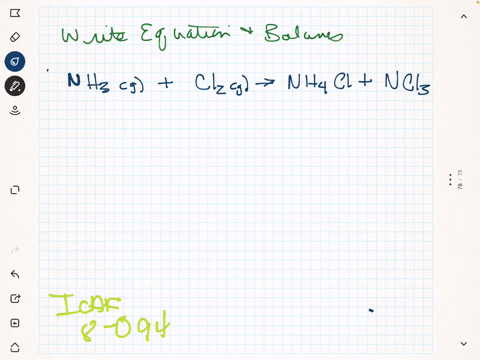 Write Equation + Balance
NH3 (g) + Cl2 (g) → NH4Cl + NCl3
78 / 78
8-094